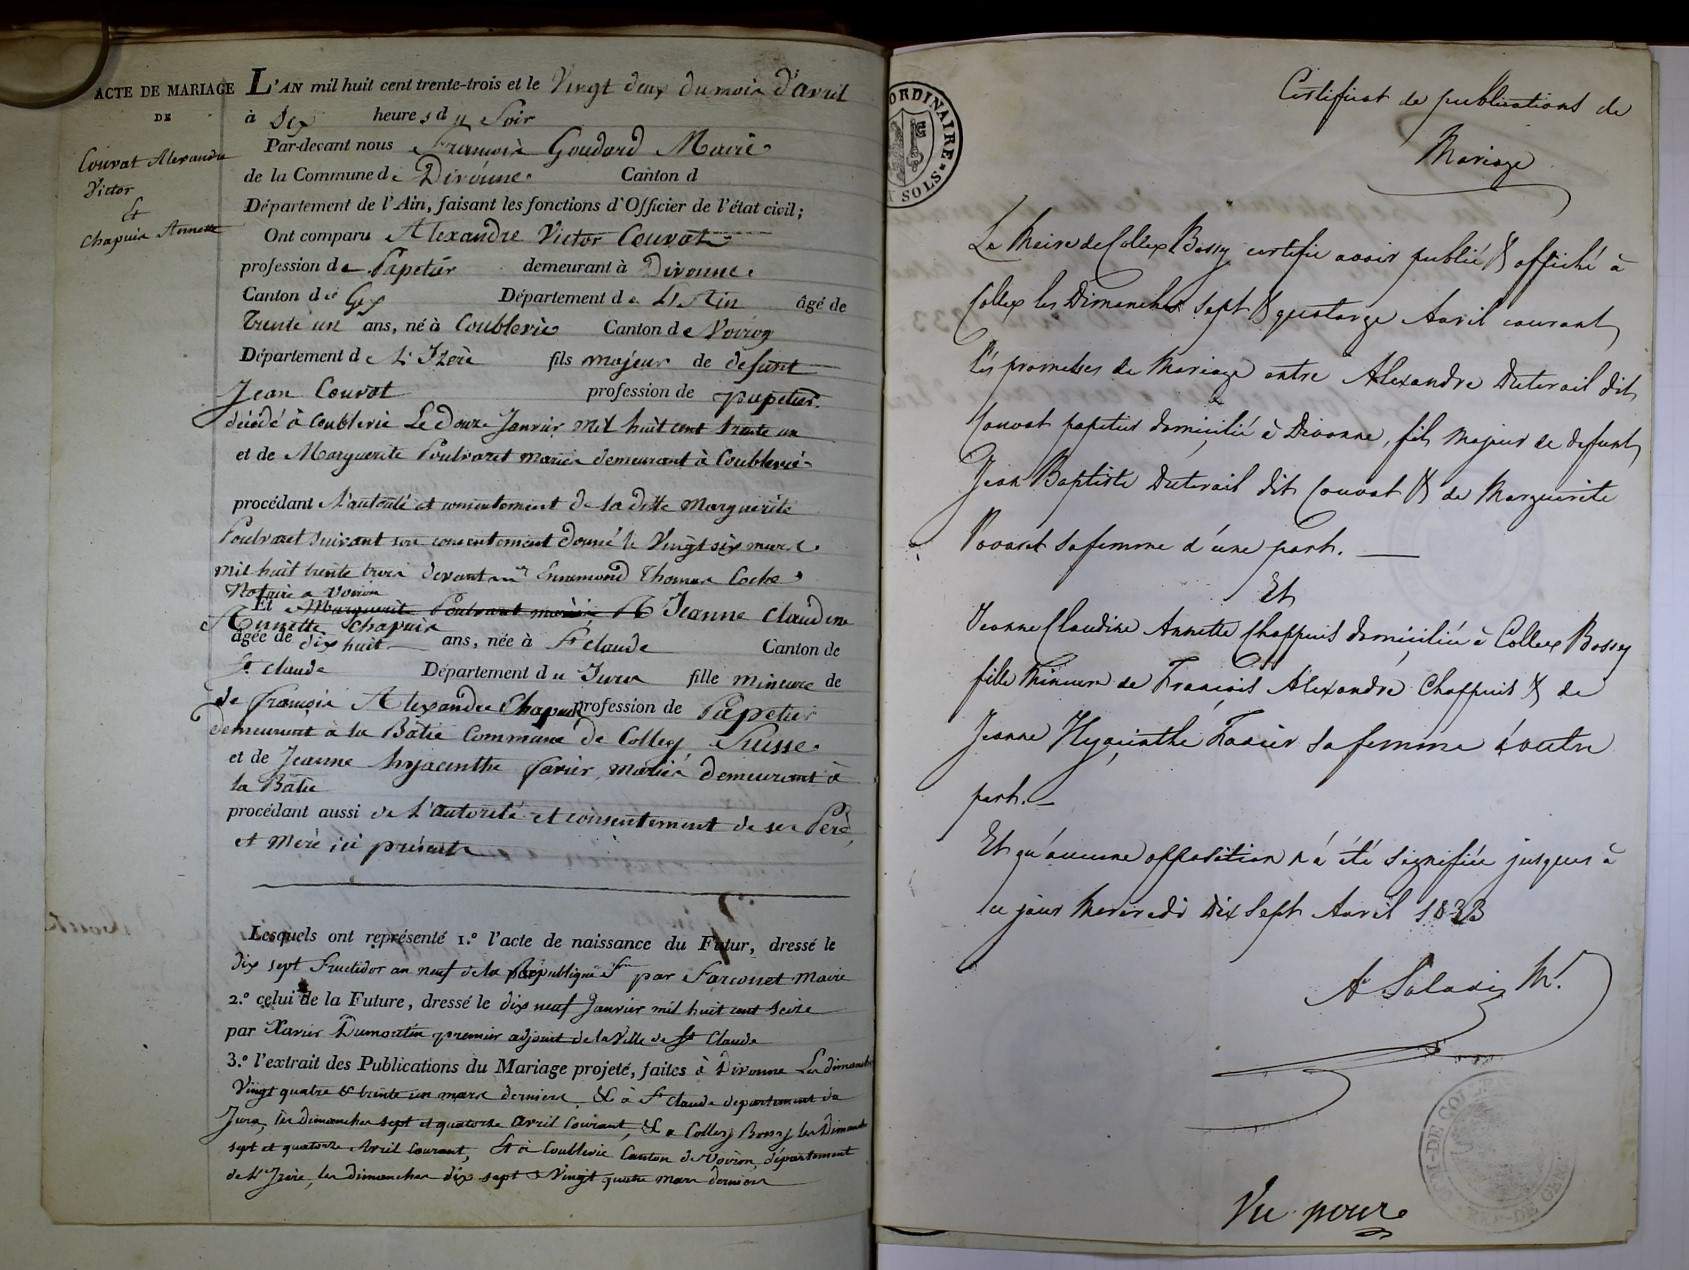 ACTE DE MARIAGE
DE
Couvat Alexandre
Victor
&
Chapuis Annette
L'AN mil huit cent trente-trois et le Vingt deux du mois d'avril
à Six heures du Soir
Par-devant nous François Goudard Maire
de la Commune de Divonne Canton d
Département de l'Ain, faisant les fonctions d'Officier de l'état civil;
Ont comparu Alexandre Victor Couvat
profession de Papetier demeurant à Divonne
Canton de Gex Département de L'Ain âgé de
Trente un ans, né à Coublevie Canton de Voiron
Département de L'Izère fils majeur de defunt
Jean Couvat profession de papetier
décédé à Coublevie Le douze Janvier mil huit cent trente un
et de Marguerite demeurant à Coublevie
procédant L'autorité et consentement de la ditte Marguerite
suivant son consentement donné le Vingt six mars
mil huit trente trois devant Ennemond Thomas
Notaire a Voiron
Et Jeanne Claudine
Annette Chapuis
âgée de dix huit ans, née à St Claude Canton de
St Claude Département du Jura fille mineure de
de François Alexandre Chapuis profession de Papetier
demeurant à la Batie Commune de Collex Suisse
et de Jeanne hyacinthe favier, mariés demeurant à
la Batie
procédant aussi de L'autorité et consentement de ses Père
et Mère ici présents
Lesquels ont représenté 1.º l'acte de naissance du Futur, dressé le
dix sept fructidor an neuf de la République par Maire
2.º celui de la Future, dressé le dix neuf Janvier mil huit cent seize
par Xavier Dumoulin premier adjoint de la Ville de St Claude
3.º l'extrait des Publications du Mariage projeté, faites à Divonne Les dimanches
Vingt quatre & trente un mars derniers & à St Claude departement du
Jura, les dimanches sept et quatorze avril Courant, & a Collex Bossy les Dimanches
sept et quatorze Avril Courant, Et à Coublevie Canton de Voiron, département
de L'Izère, les dimanches dix sept & Vingt quatre mars derniers
ORDINAIRE
SOLS
Certificat de publications de
Mariage
Le Maire de Collex Bossy certifie avoir publié & affiché à
Collex les Dimanches sept & quatorze Avril courant
les promesses de Mariage entre Alexandre Duterail dit
Couvat papetier domicilié à Divonne, fils majeur de defunt
Jean Baptiste Duterail dit Couvat & de Marguerite
sa femme d'une part.
Et
Jeanne Claudine Annette Chappuis domiciliée à Collex Bossy
fille Mineure de François Alexandre Chappuis & de
Jeanne Hyacinthe Favier sa femme d'autre
part.
Et qu'aucune opposition n'a été signifiée jusques à
ce jour Mercredi Dix Sept Avril 1833
A Saladin M.
Vu pour